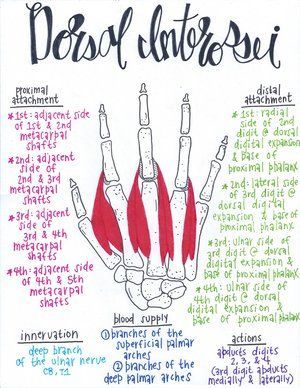 Dorsal Interossei
proximal
attachment
*1st: adjacent side
of 1st & 2nd
metacarpal
shafts
*2nd: adjacent
side of
2nd & 3rd
metacarpal
shafts
*3rd: adjacent
side of
3rd & 4th
metacarpal
shafts
*4th: adjacent side
of 4th & 5th
metacarpal
shafts
distal
attachment
*1st: radial
side of 2nd
digit @ dorsal
digital expansion
& base of
proximal phalanx
*2nd: lateral side
of 3rd digit @
dorsal digital
expansion & base of
proximal phalanx
*3rd: ulnar side of
3rd digit @ dorsal
digital expansion &
base of proximal phalanx
*4th: ulnar side of
4th digit @ dorsal
digital expansion &
base of proximal phalanx
innervation
deep branch
of the ulnar nerve
C8, T1
blood supply
① branches of the
superficial palmar
arches
② branches of the
deep palmar arches
actions
abducts digits
2, 3, & 4
(3rd digit abducts
medially & laterally)